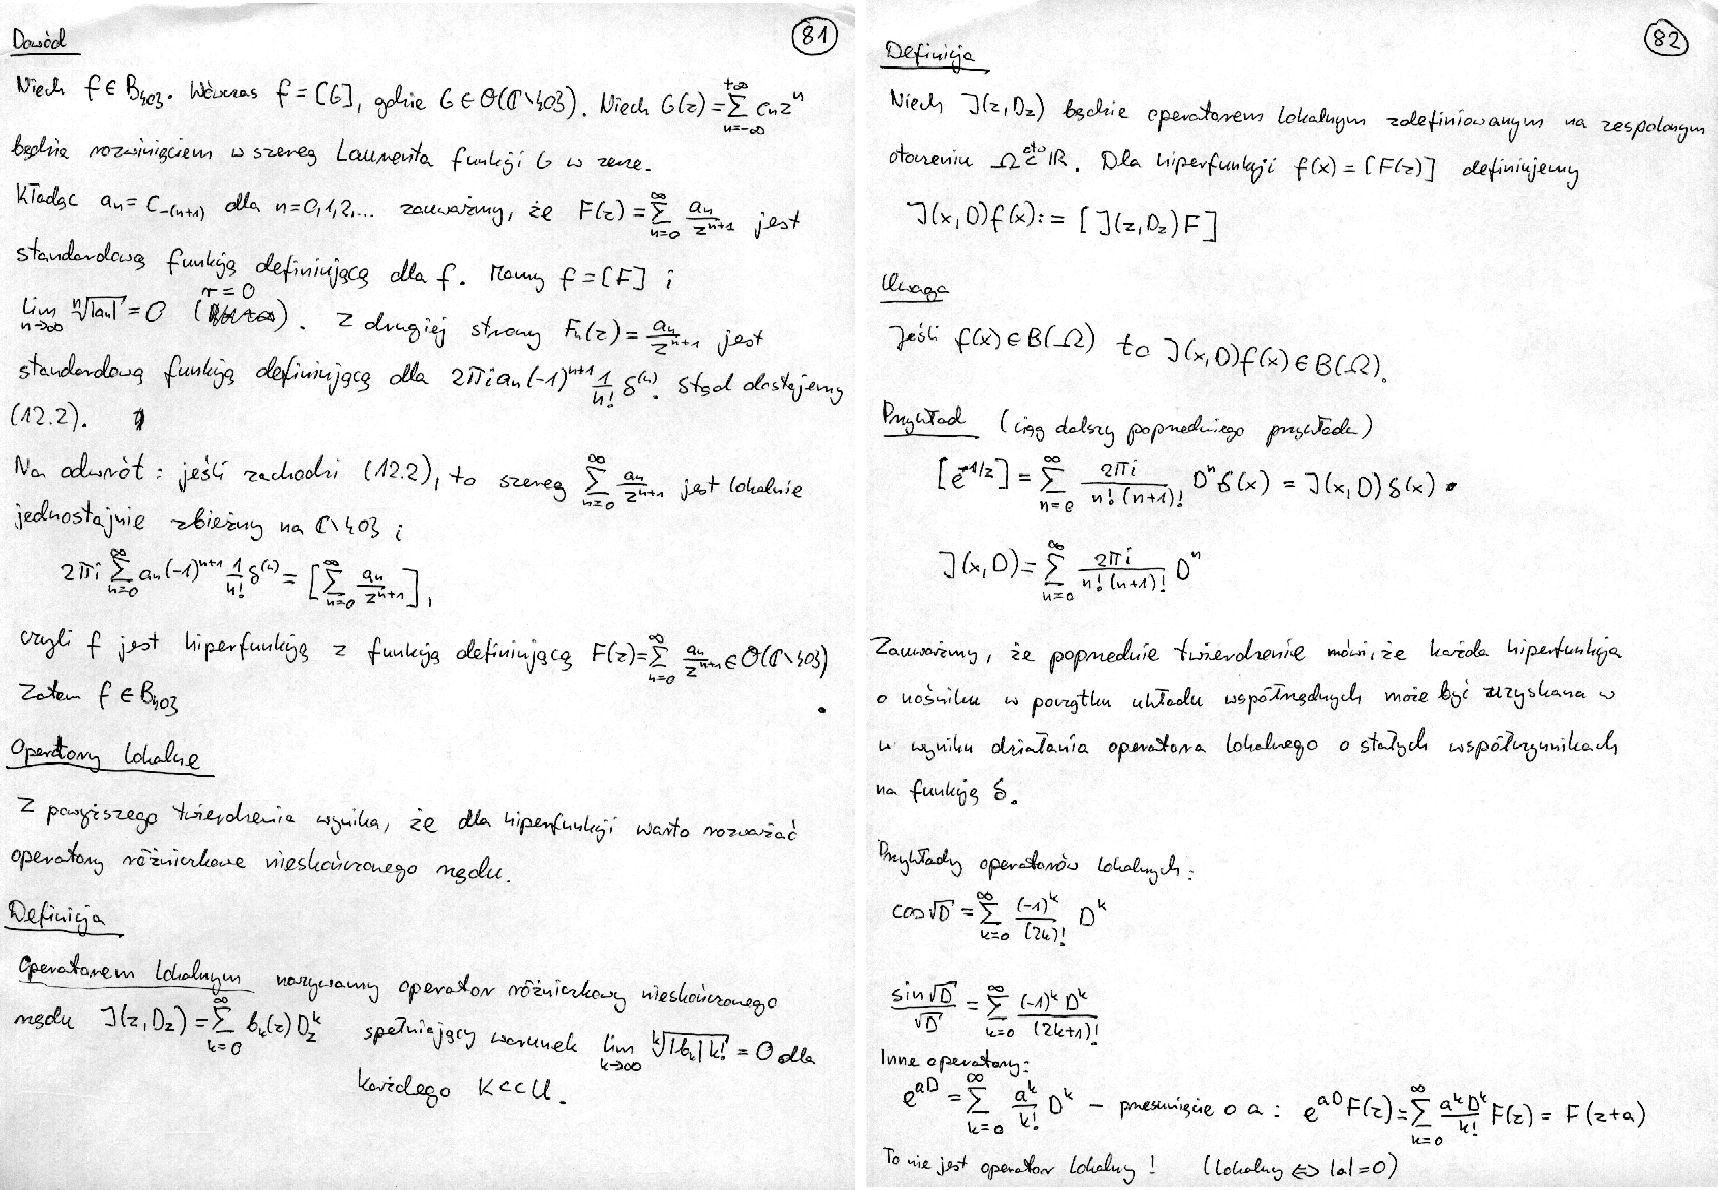 81
Dowód
Niech f ∈ B_{0}. Wówczas f = [G], gdzie G ∈ O(ℂ\{0}). Niech G(z) = ∑_{n=-∞}^{+∞} c_n z^n
będzie rozwinięciem w szereg Laurenta funkcji G w zerze.
Kładąc a_n = c_{-(n+1)} dla n=0,1,2,... zauważmy, że F(z) = ∑_{n=0}^{∞} a_n/z^{n+1} jest
standardową funkcją definiującą dla f. Mamy f = [F] i
lim_{n→∞} ⁿ√|a_n| = 0 (r=0). Z drugiej strony F_n(z) = a_n/z^{n+1} jest
standardową funkcją definiującą dla 2πi a_n (-1)^{n+1} 1/n! δ^{(n)}. Stąd dostajemy
(12.2).
Na odwrót: jeśli zachodzi (12.2), to szereg ∑_{n=0}^{∞} a_n/z^{n+1} jest lokalnie
jednostajnie zbieżny na ℂ\{0} i
2πi ∑_{n=0}^{∞} a_n (-1)^{n+1} 1/n! δ^{(n)} = [∑_{n=0}^{∞} a_n/z^{n+1}],
czyli f jest hiperfunkcją z funkcją definiującą F(z) = ∑_{n=0}^{∞} a_n/z^{n+1} ∈ O(ℂ\{0})
Zatem f ∈ B_{0}
Operatory lokalne
Z powyższego twierdzenia wynika, że dla hiperfunkcji warto rozważać
operatory różniczkowe nieskończonego rzędu.
Definicja
Operatorem lokalnym nazywamy operator różniczkowy nieskończonego
rzędu J(z,D_z) = ∑_{k=0}^{∞} b_k(z) D_z^k spełniający warunek lim_{k→∞} ᵏ√(|b_k| k!) = 0 dla
każdego K⊂⊂U.
82
Definicja
Niech J(z,D_z) będzie operatorem lokalnym zdefiniowanym na zespolonym
otoczeniu Ω ⊂^{otw} ℝ. Dla hiperfunkcji f(x) = [F(z)] definiujemy
J(x,D)f(x) := [J(z,D_z)F]
Uwaga
Jeśli f(x) ∈ B(Ω) to J(x,D)f(x) ∈ B(Ω).
Przykład (ciąg dalszy poprzedniego przykładu)
[e^{-1/z}] = ∑_{n=0}^{∞} 2πi/(n!(n+1)!) D^n δ(x) = J(x,D) δ(x).
J(x,D) = ∑_{n=0}^{∞} 2πi/(n!(n+1)!) D^n
Zauważmy, że poprzednie twierdzenie mówi, że każda hiperfunkcja
o nośniku w początku układu współrzędnych może być uzyskana w
w wyniku działania operatora lokalnego o stałych współczynnikach
na funkcję δ.
Przykłady operatorów lokalnych:
cos√D = ∑_{k=0}^{∞} (-1)^k/(2k)! D^k
sin√D/√D = ∑_{k=0}^{∞} (-1)^k D^k/(2k+1)!
Inne operatory:
e^{aD} = ∑_{k=0}^{∞} a^k/k! D^k – przesunięcie o a: e^{aD}F(z) = ∑_{k=0}^{∞} a^k D^k/k! F(z) = F(z+a)
To nie jest operator lokalny! (lokalny ⇔ |a|=0)